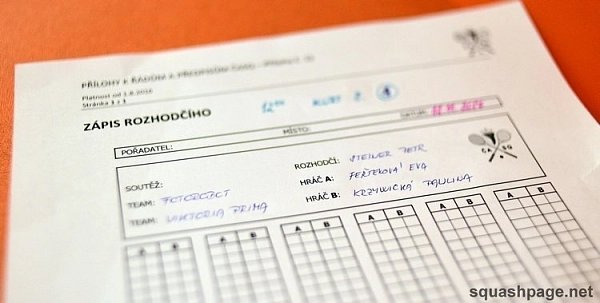 PŘÍLOHY K ŘÁDŮM A PŘEDPISŮM
Platnost od 1.8.2016
Stránka 1 z 1
ZÁPIS ROZHODČÍHO
KURT Č. 1
DATUM:
POŘADATEL:
MÍSTO:
SOUTĚŽ:
ROZHODČÍ: STEINER PETR
TEAM: FOTOROBOT
HRÁČ A: FEŘTEKOVÁ EVA
TEAM: VIKTORIA PRIMA
HRÁČ B: KRZYWICKÁ PAULINA
CA SQ
A B A B A B A B A B
squashpage.net